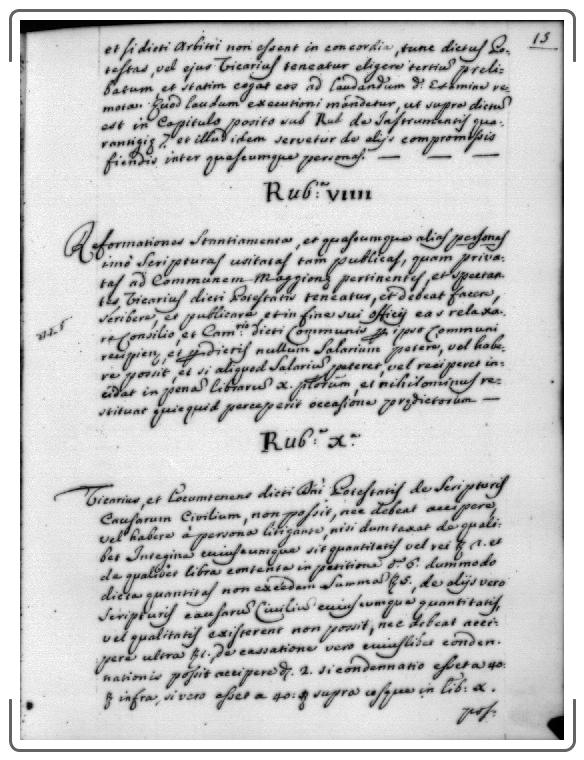 15
et si dicti Arbitri non essent in concordia, tunc dictus Po-
testas, vel ejus Vicarius teneatur eligere tertiũ preli-
batum et statim cogat eos ad laudandum d. Examine re-
mota. Quod laudum executioni mandetur, ut supra dictũ
est in Capitulo posito sub Rub. de Instrumentis qua-
rantigiz et illud idem servetur de alijs compromissis
fiendis inter quascumque personas.
Rub.ª VIIII
Reformationes Stantiamenta, et quascumque alias personas
imò Scripturas usitatas tam publicas, quam priva-
tas ad Communem Maggionz pertinentes, et spectan-
tes Vicarius dicti Potestatis teneatur, et debeat facere,
scribere, et publicare et in fine sui officij eas relaxa-
re Consilio, et Cam.rio dicti Communis ipsi Communi
recipien, et dictis nullum Salarium petere, vel habe-
re possit, et si aliquod Salariũ peteret, vel reciperet in-
cidat in penã librarum x. et nihilominus re-
stituat quicquid perceperit occasione prędictorum
Rub.ª X.ª
Vicarius, et Locumtenens dicti Dñi Potestatis de Scripturis
Causarum Civilium, non possit, nec debeat accipere,
vel habere à persona litigante, nisi dumtaxat de quali-
bet Integina cuiuscumque sit quantitatis vel rei 1. et
de qualibet libra contenta in petitione d. 6. dummodo
dicta quantitas non excedam Summã 5, de alijs vero
Scripturis causarũ Civiliũ cuiuscumque quantitatis,
vel qualitatis existerent non possit, nec debeat acci-
pere ultra 1. de cassatione vero cuiuslibet conden-
nationis possit accipere d. 2. si condennatio esset a 40:
infra, si vero esset a 40: supra usque in lib: x.
pos: